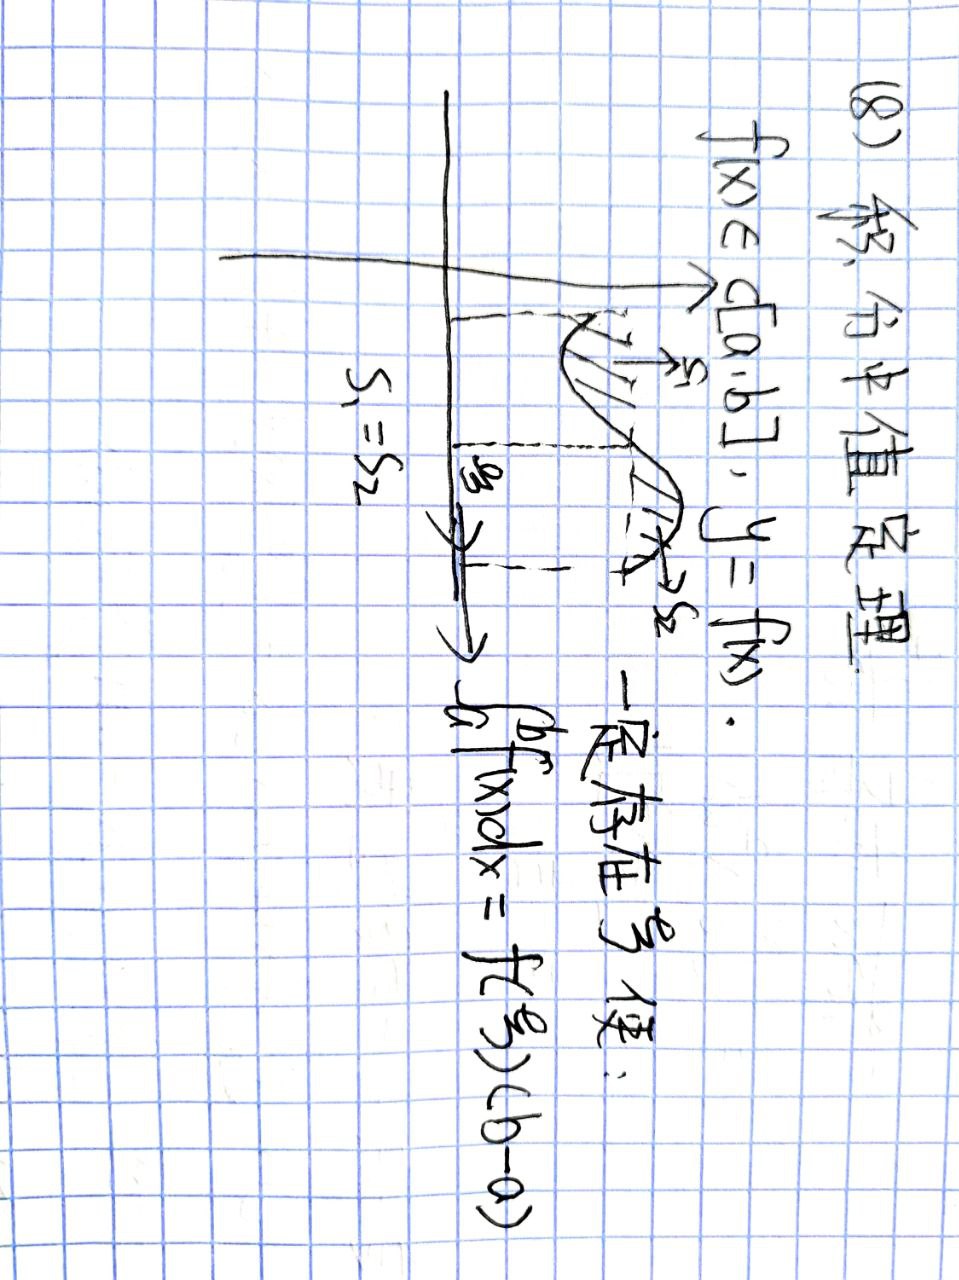 (8) 积分中值定理.
f(x)∈C[a,b], y=f(x).
S₁
S₂
一定存在ξ使:
ξ
∫ₐᵇf(x)dx=f(ξ)(b-a)
S₁=S₂